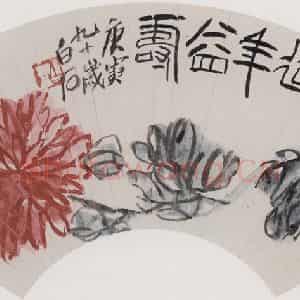 年益壽
庚寅
九十歲
白石